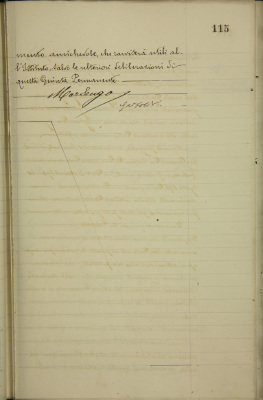 115
mento amichevole, che crederà utili al-
l'Istituto, salve le ulteriori deliberazioni di
questa Giunta Permanente